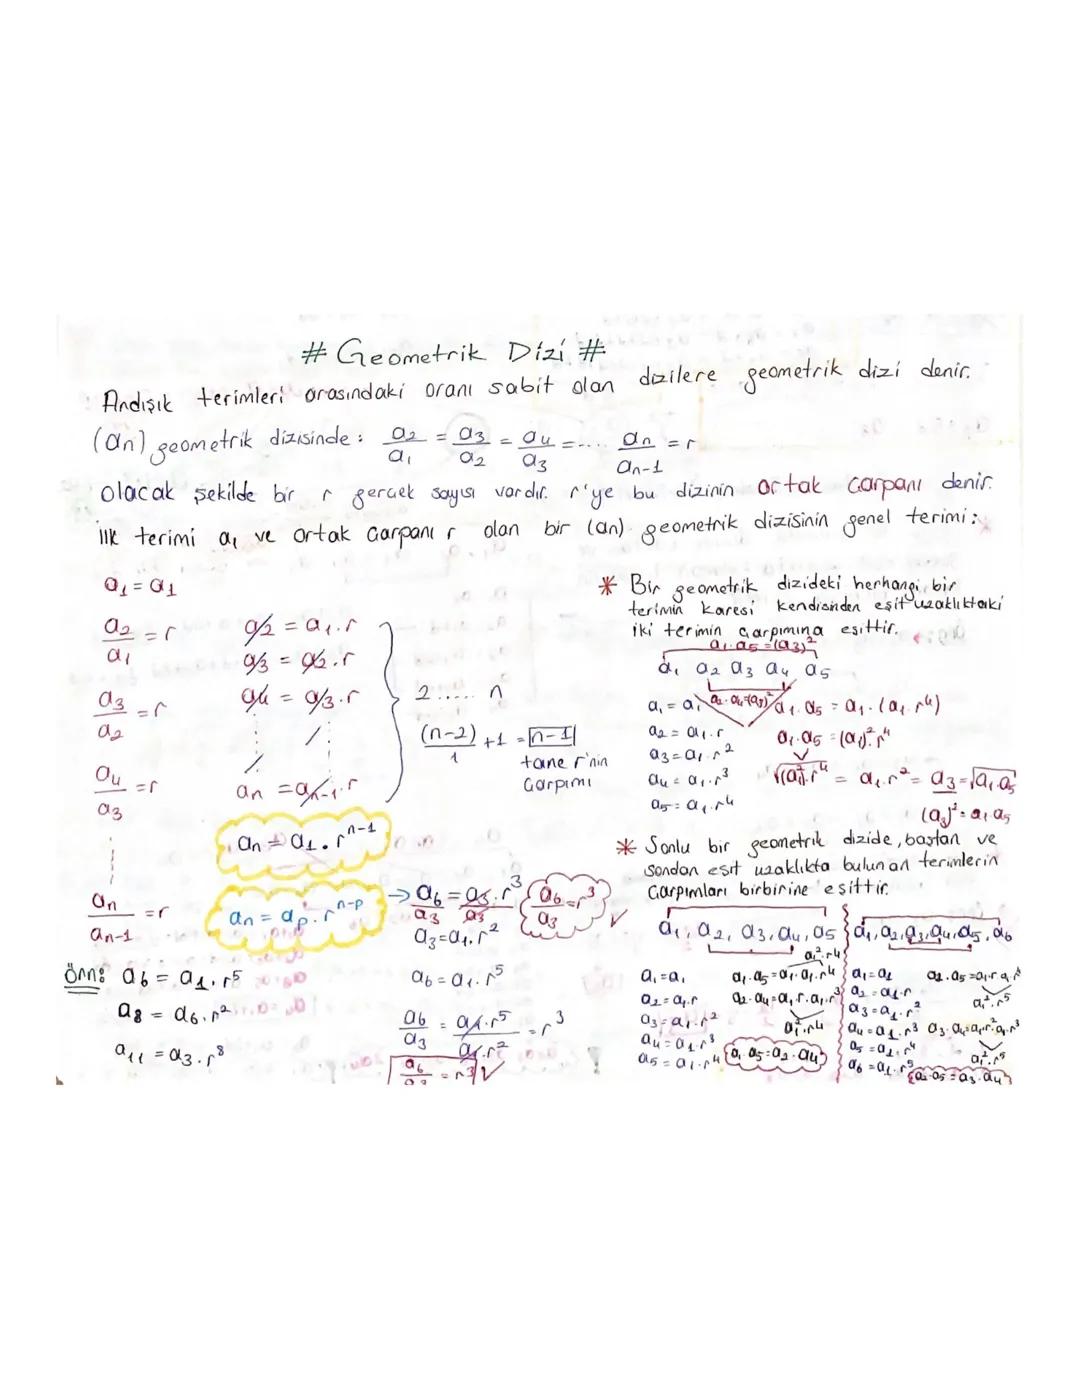 # Geometrik Dizi #
Ardışık terimleri arasındaki oranı sabit olan dizilere geometrik dizi denir.
(an) geometrik dizisinde: a2/a1 = a3/a2 = a4/a3 = .... an/an-1 = r
olacak şekilde bir r gerçek sayısı vardır. r'ye bu dizinin ortak çarpanı denir.
İlk terimi a1 ve ortak çarpanı r olan bir (an) geometrik dizisinin genel terimi:
a1 = a1
a2/a1 = r
a3/a2 = r
a4/a3 = r
an/an-1 = r
a2 = a1.r
a3 = a2.r
a4 = a3.r
an = an-1.r
2 ..... n
(n-2)/1 +1 = n-1
tane r'nin
çarpımı
an = a1 . r^n-1
an = ap . r^n-p
Örn: a6 = a1 . r^5
a8 = a6 . r^2
a11 = a3 . r^8
→ a6/a3 = a3.r^3/a3
a6/a3 = r^3 ✓
a3 = a1.r^2
a6 = a1.r^5
a6/a3 = a1.r^5/a1.r^2 = r^3
a6/a3 = r^3 ✓
* Bir geometrik dizideki herhangi bir
terimin karesi kendisinden eşit uzaklıktaki
iki terimin çarpımına eşittir.
a1.a5 = (a3)^2
a1 a2 a3 a4 a5
a2.a4=(a3)^2
a1 = a1
a2 = a1.r
a3 = a1.r^2
a4 = a1.r^3
a5 = a1.r^4
a1.a5 = a1.(a1.r^4)
a1.a5 = (a1)^2.r^4
√(a1)^2.r^4 = a1.r^2 = a3 = √a1.a5
(a3)^2 = a1.a5
* Sonlu bir geometrik dizide, baştan ve
sondan eşit uzaklıkta bulunan terimlerin
çarpımları birbirine eşittir.
a1, a2, a3, a4, a5
a1 = a1
a2 = a1.r
a3 = a1.r^2
a4 = a1.r^3
a5 = a1.r^4
a1^2.r^4
a1.a5 = a1.a1.r^4
a2.a4 = a1.r.a1.r^3
a1^2.r^4
a1.a5 = a2.a4
a1, a2, a3, a4, a5, a6
a1 = a1
a2 = a1.r
a3 = a1.r^2
a4 = a1.r^3
a5 = a1.r^4
a6 = a1.r^5
a2.a5 = a1.r.a1.r^4
a1^2.r^5
a3.a4 = a1.r^2.a1.r^3
a1^2.r^5
a2.a5 = a3.a4